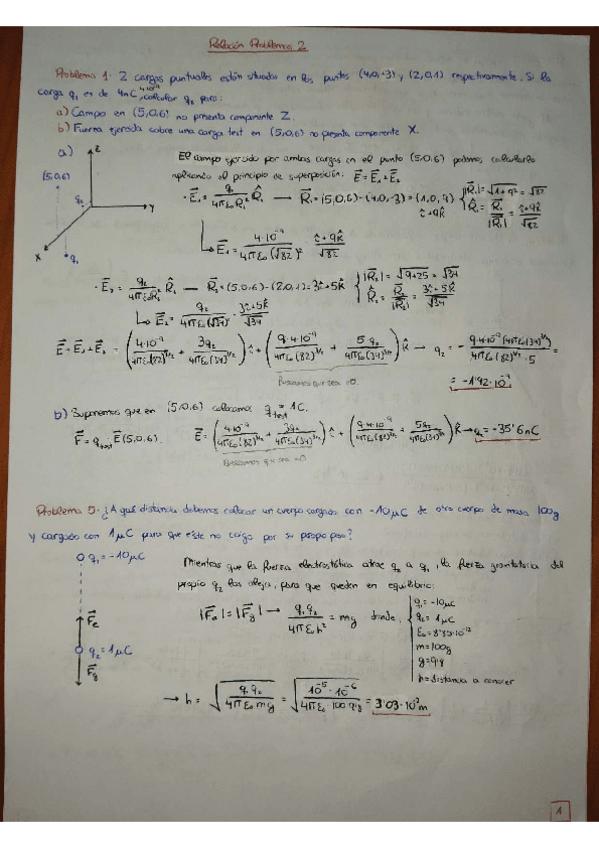 Relación Problemas 2
Problema 1. 2 cargas puntuales están situadas en los puntos (4,0,-3) y (2,0,1) respectivamente. Si la
carga q₁ es de 4nC, calcular q₂ para:
a) Campo en (5,0,6) no presenta componente Z.
b) Fuerza ejercida sobre una carga test en (5,0,6) no presenta componente X.
a)
Z
(5,0,6)
q₂
Y
X
q₁
El campo ejercido por ambas cargas en el punto (5,0,6) podemos calcularlo
aplicando el principio de superposición: E⃗ = E⃗₁ + E⃗₂
· E⃗₁ = q₁/(4πε₀R₁²) R̂₁ → R⃗₁ = (5,0,6) - (4,0,-3) = (1,0,9) { |R⃗₁| = √(1+9²) = √82
î+9k̂
R̂₁ = R⃗₁/|R⃗₁| = (î+9k̂)/√82
↳ E⃗₁ = 4·10⁻⁹/(4πε₀(√82)²) (î+9k̂)/√82
· E⃗₂ = q₂/(4πε₀R₂²) R̂₂ → R⃗₂ = (5,0,6) - (2,0,1) = 3î+5k̂ { |R⃗₂| = √(9+25) = √34
R̂₂ = R⃗₂/|R⃗₂| = (3î+5k̂)/√34
↳ E⃗₂ = q₂/(4πε₀(√34)²) · (3î+5k̂)/√34
E⃗ = E⃗₁ + E⃗₂ = (4·10⁻⁹/(4πε₀(82)^3/2) + 3q₂/(4πε₀(34)^3/2)) î + (9·4·10⁻⁹/(4πε₀(82)^3/2) + 5q₂/(4πε₀(34)^3/2)) k̂ → q₂ = - 9·4·10⁻⁹(4πε₀(34)^3/2)/(4πε₀(82)^3/2 · 5) =
Buscamos que sea =0.
= -1'92·10⁻⁹
b) Suponemos que en (5,0,6) colocamos q test = 1C.
F⃗ = q test · E⃗(5,0,6). E⃗ = (4·10⁻⁹/(4πε₀(82)^3/2) + 3q₂/(4πε₀(34)^3/2)) î + (9·4·10⁻⁹/(4πε₀(82)^3/2) + 5q₂/(4πε₀(34)^3/2)) k̂ → q₂ = -35'6nC
Buscamos que sea =0
Problema 5. ¿A qué distancia debemos colocar un cuerpo cargado con -10μC de otro cuerpo de masa 100g
y cargado con 1μC para que este no caiga por su propio peso?
q₁ = -10μC
F⃗e
q₂ = 1μC
F⃗g
Mientras que la fuerza electrostática atrae q₂ a q₁, la fuerza gravitatoria del
propio q₂ los aleja, para que queden en equilibrio:
|F⃗e| = |F⃗g| → q₁q₂/(4πε₀h²) = mg donde, { q₁ = -10μC
q₂ = 1μC
ε₀ = 8'85·10⁻¹²
m = 100g
g = 9'8
h = distancia a conocer
→ h = √(q₁q₂/(4πε₀mg)) = √(10⁻⁵·10⁻⁶/(4πε₀·100·9'8)) = 3'03·10⁻²m
1